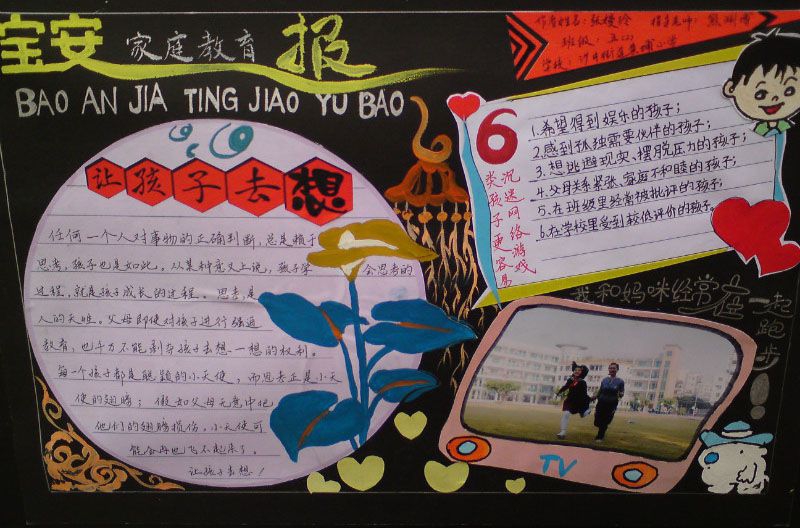 宝安 家庭教育 报
BAO AN JIA TING JIAO YU BAO
指导老师:
班级:五(2)
学校:沙井街道
让孩子去想
任何一个人对事物的正确判断,总是赖于
思考,孩子也是如此。从某种意义上说,孩子学会思考的
过程,就是孩子成长的过程。思考是
人的天性。父母即使对孩子进行强迫
教育,也千万不能剥夺孩子去想一想的权利。
每一个孩子都是聪颖的小天使,而思考正是小天
使的翅膀;假如父母无意中把
他们的翅膀损伤,小天使可
能会再也飞不起来了。
让孩子去想!
6
类孩子更容易
沉迷网络游戏
1.希望得到娱乐的孩子;
2.感到孤独需要伙伴的孩子;
3.想逃避现实、摆脱压力的孩子;
4.父母关系紧张、家庭不和睦的孩子;
5.在班级里经常被批评的孩子;
6.在学校里受到较低评价的孩子。
我和妈咪经常在一起
跑步!
TV